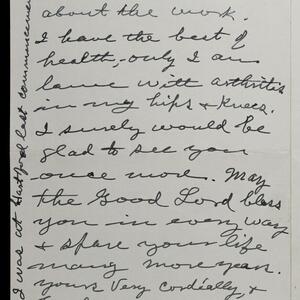 about the work.
I have the best of
health, - only I am
lame with arthritis
in my hips & knees.
I surely would be
glad to see you
once more. May
the Good Lord bless
you in every way
& spare your life
many more years.
yours Very Cordially, &
I was at Hartford last commencement